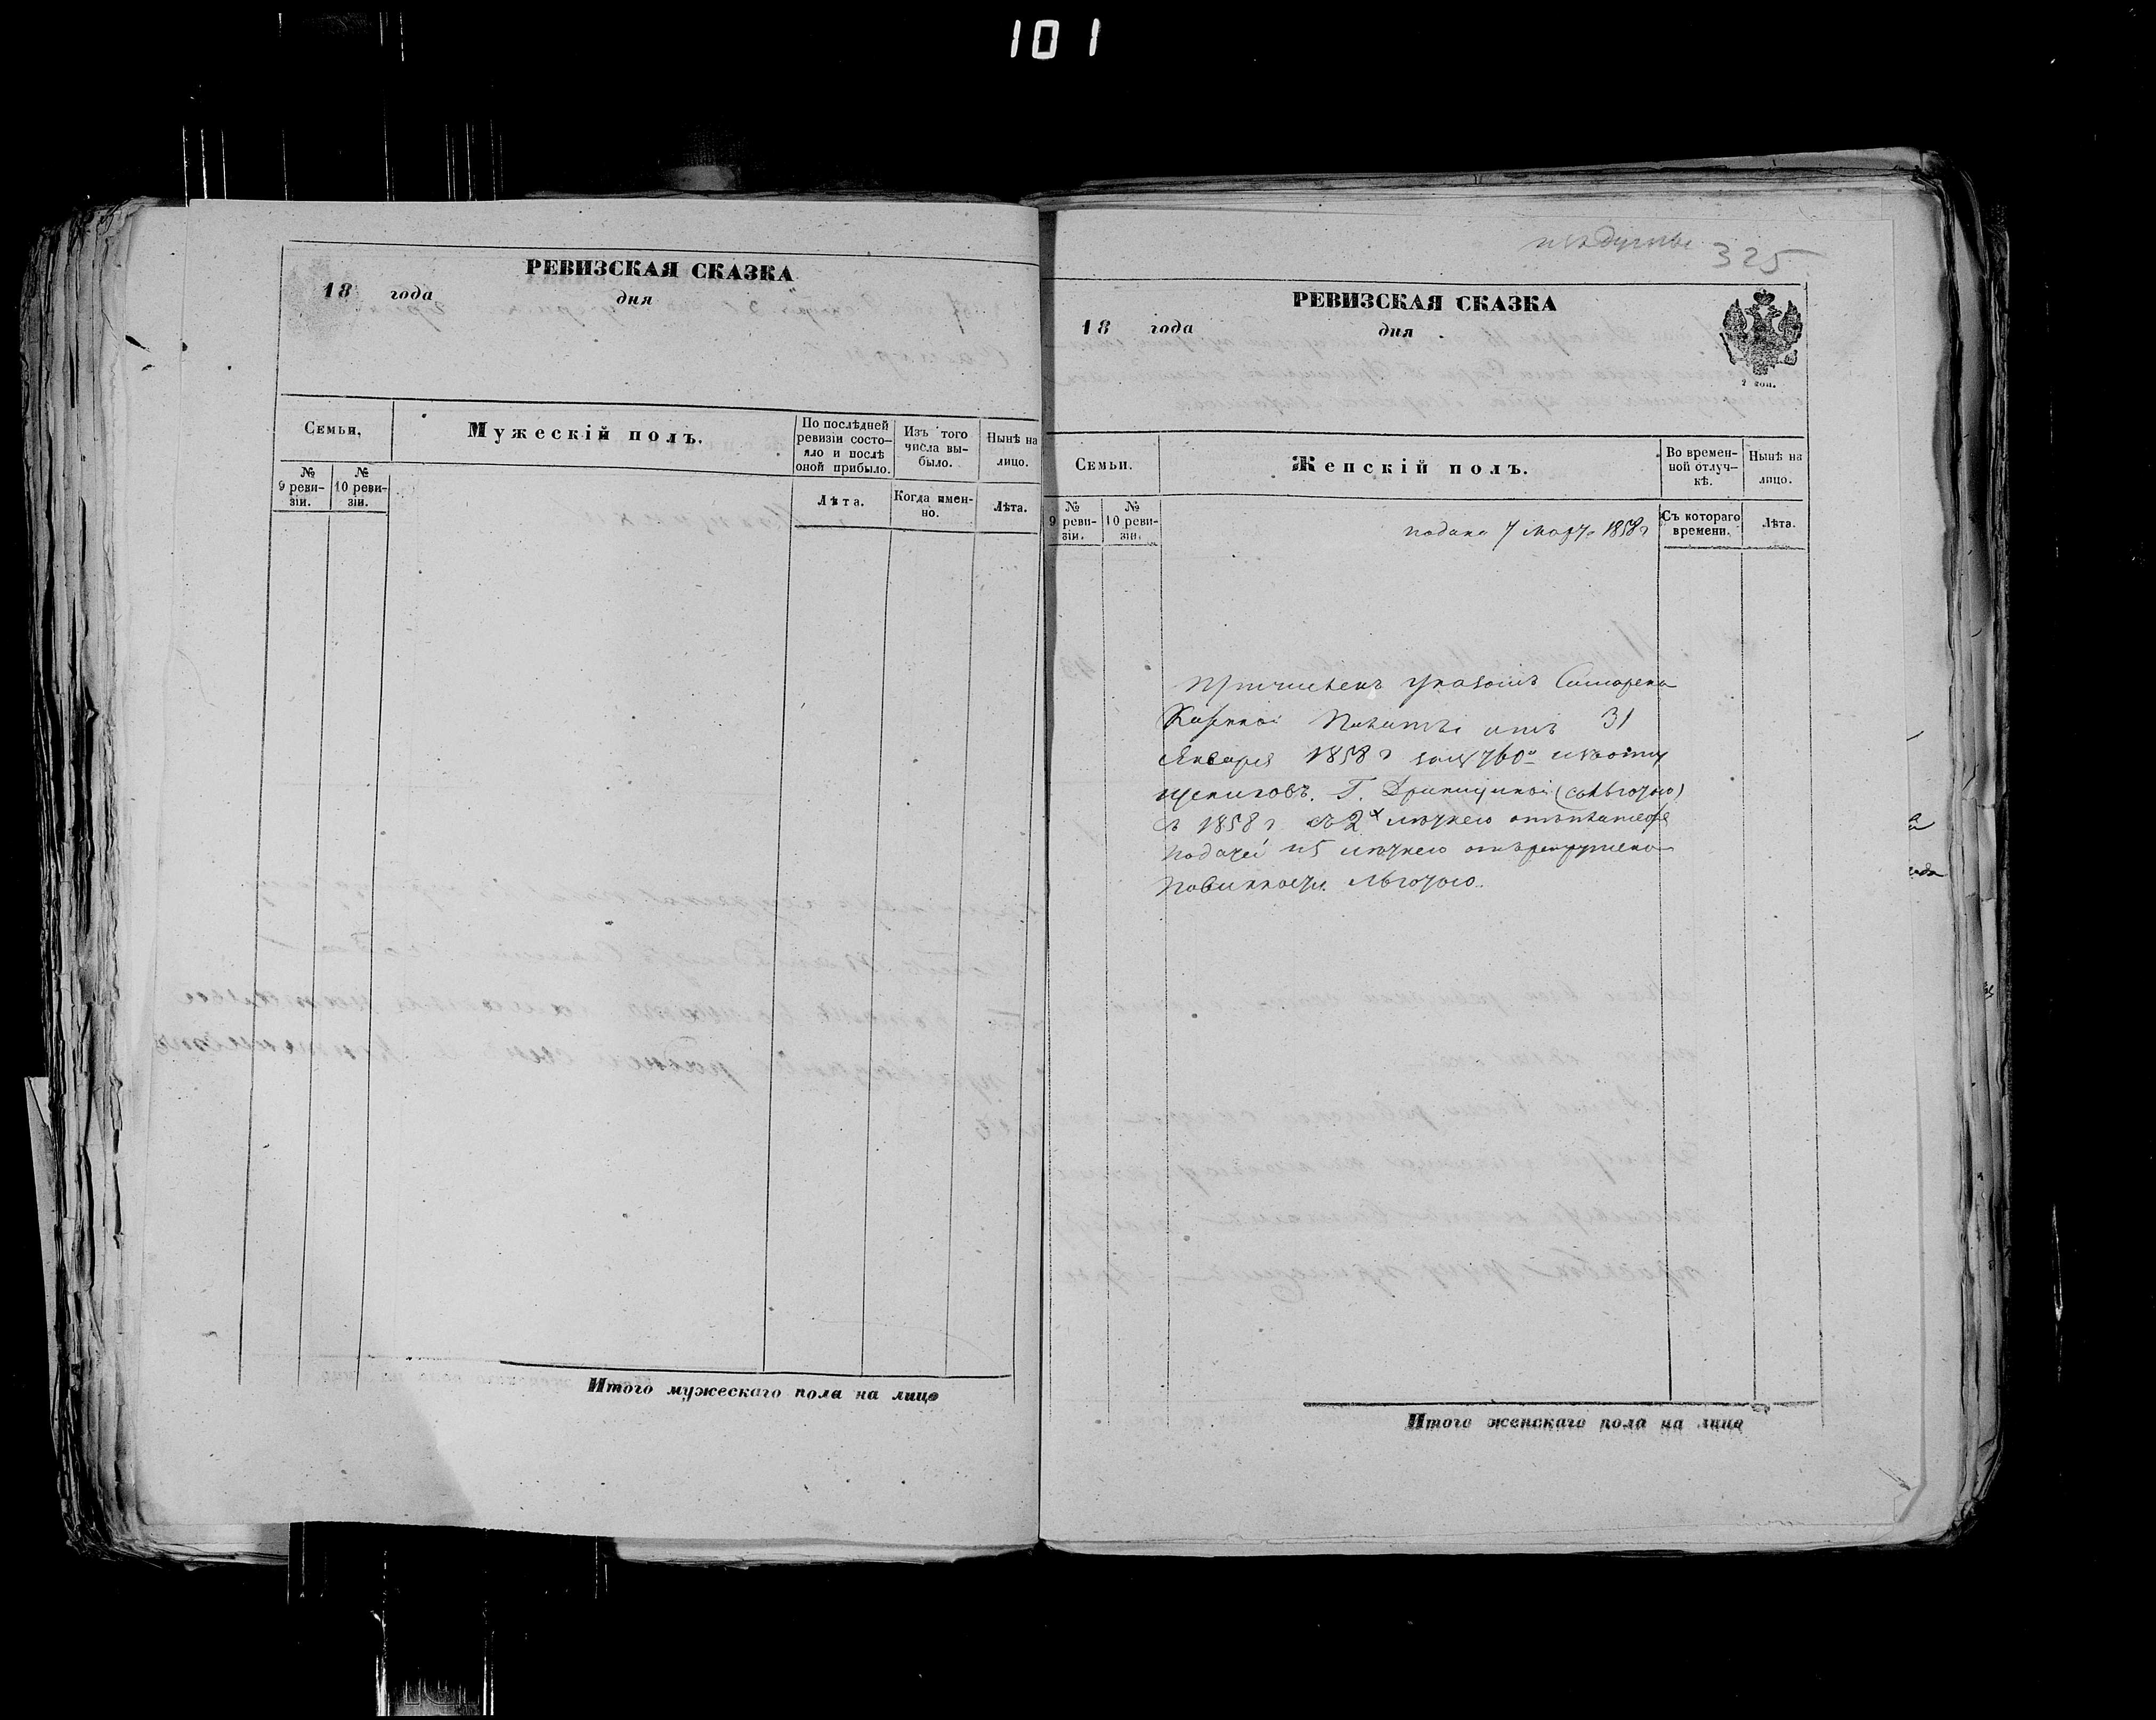 101
РЕВИЗСКАЯ СКАЗКА
18 года дня
Семьи.
Мужескій полъ.
По послѣдней ревизіи состояло и послѣ оной прибыло.
Изъ того числа выбыло.
Нынѣ на лицо.
№ 9 ревизіи.
№ 10 ревизіи.
Лѣта.
Когда именно.
Лѣта.
Итого мужескаго пола на лицо
325
РЕВИЗСКАЯ СКАЗКА
18 года дня
Семьи.
Женскій полъ.
Во временной отлучкѣ.
Нынѣ на лицо.
№ 9 ревизіи.
№ 10 ревизіи.
Съ котораго времени.
Лѣта.
подана 7 марта 1858 г
Причисленъ указомъ Самарско
Казенной Палаты отъ 31
Января 1858 г за № 760
г. (съ льготою)
съ 1858 г съ 2х отъ платежа
податей и 5 отъ рекрутской
повинности льготою.
Итого женскаго пола на лицо